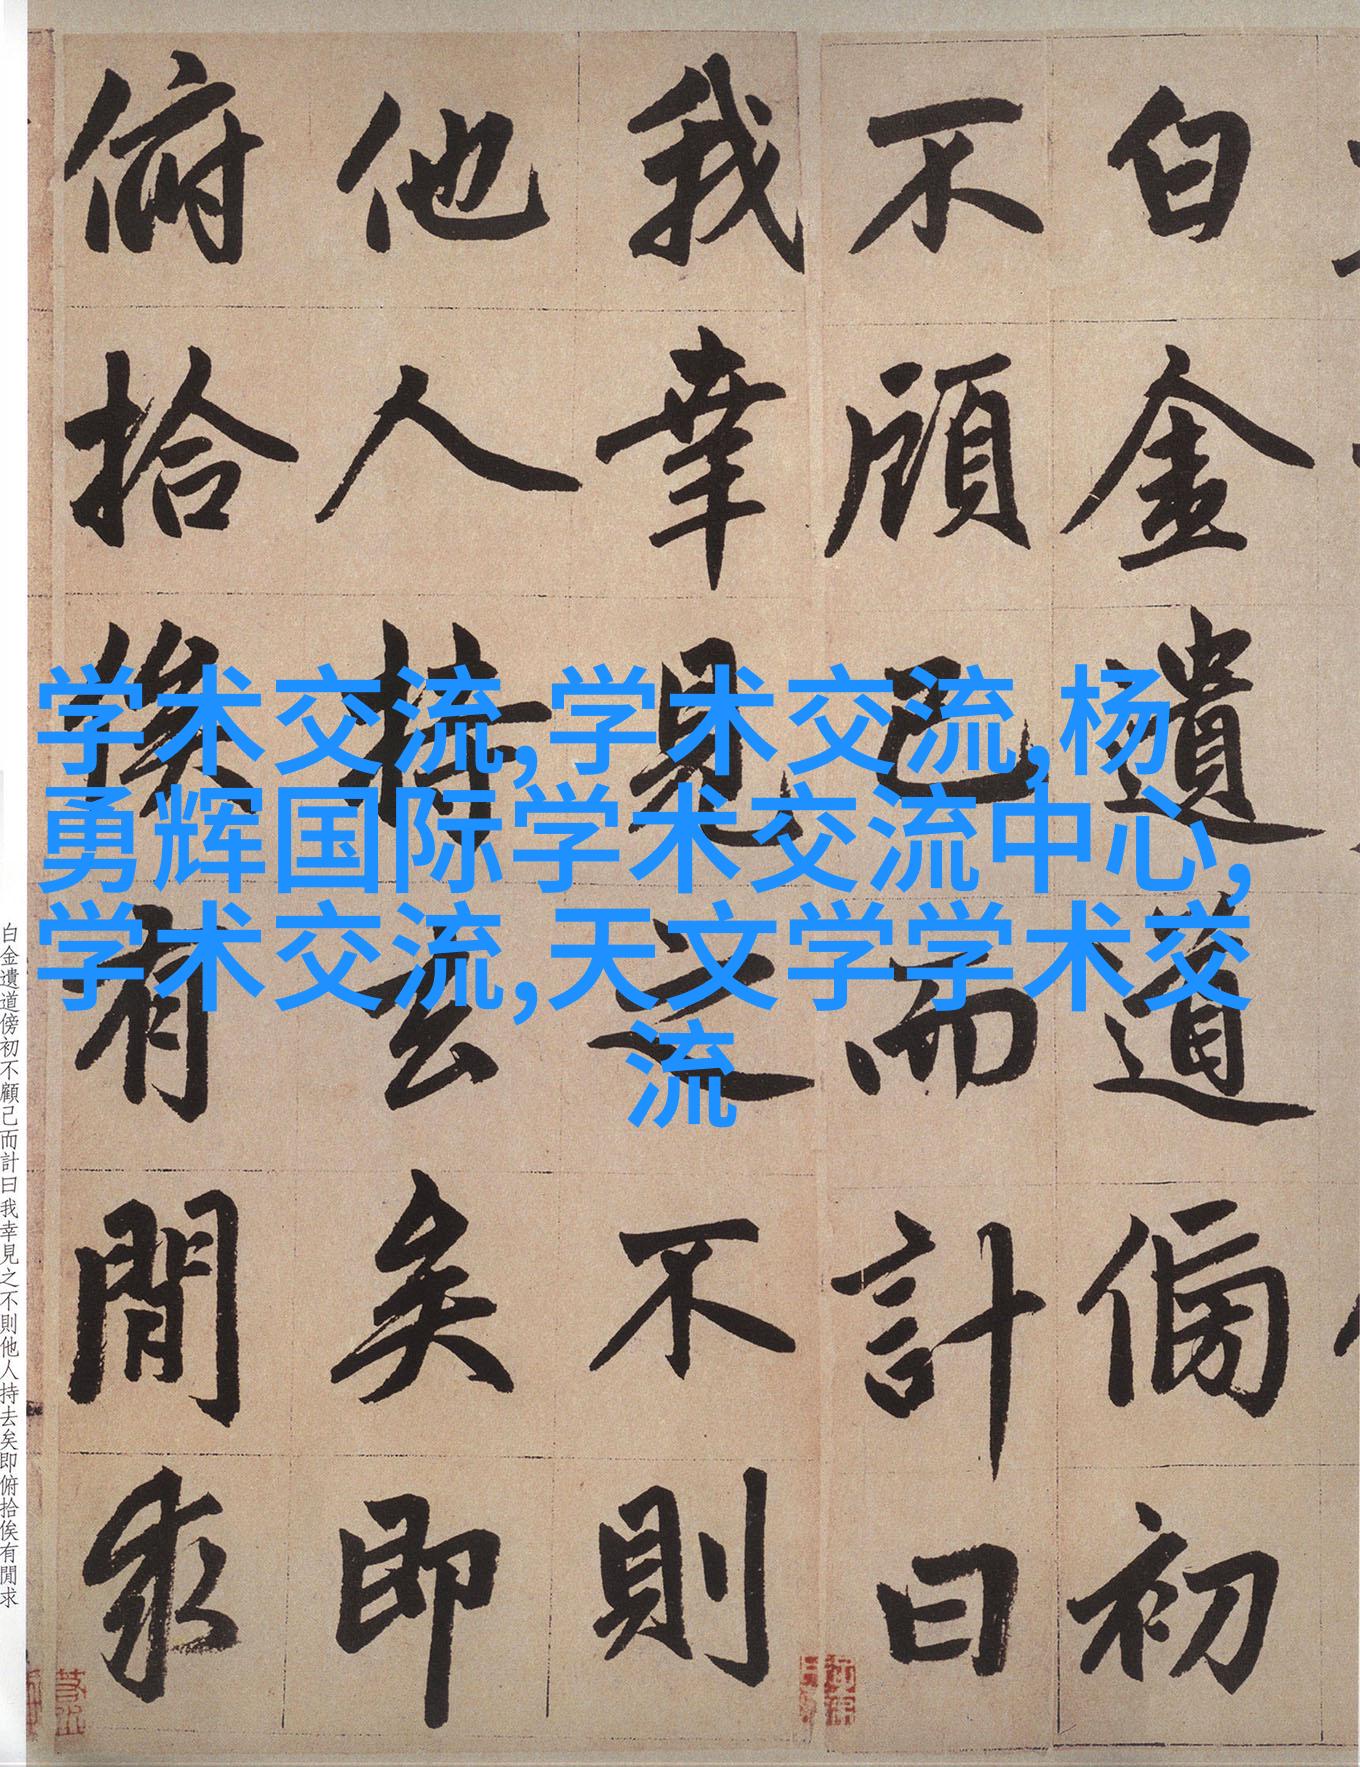 白金遺道傍初
不顧已而計曰
我幸見之不則
他人持去矣即
俯拾俟有閒求
学术交流,学术交流,杨
勇辉国际学术交流中心,
学术交流,天文学学术交
流
白金遺道傍初不顧己而計曰我幸見之不則他人持去矣即俯拾俟有閒求